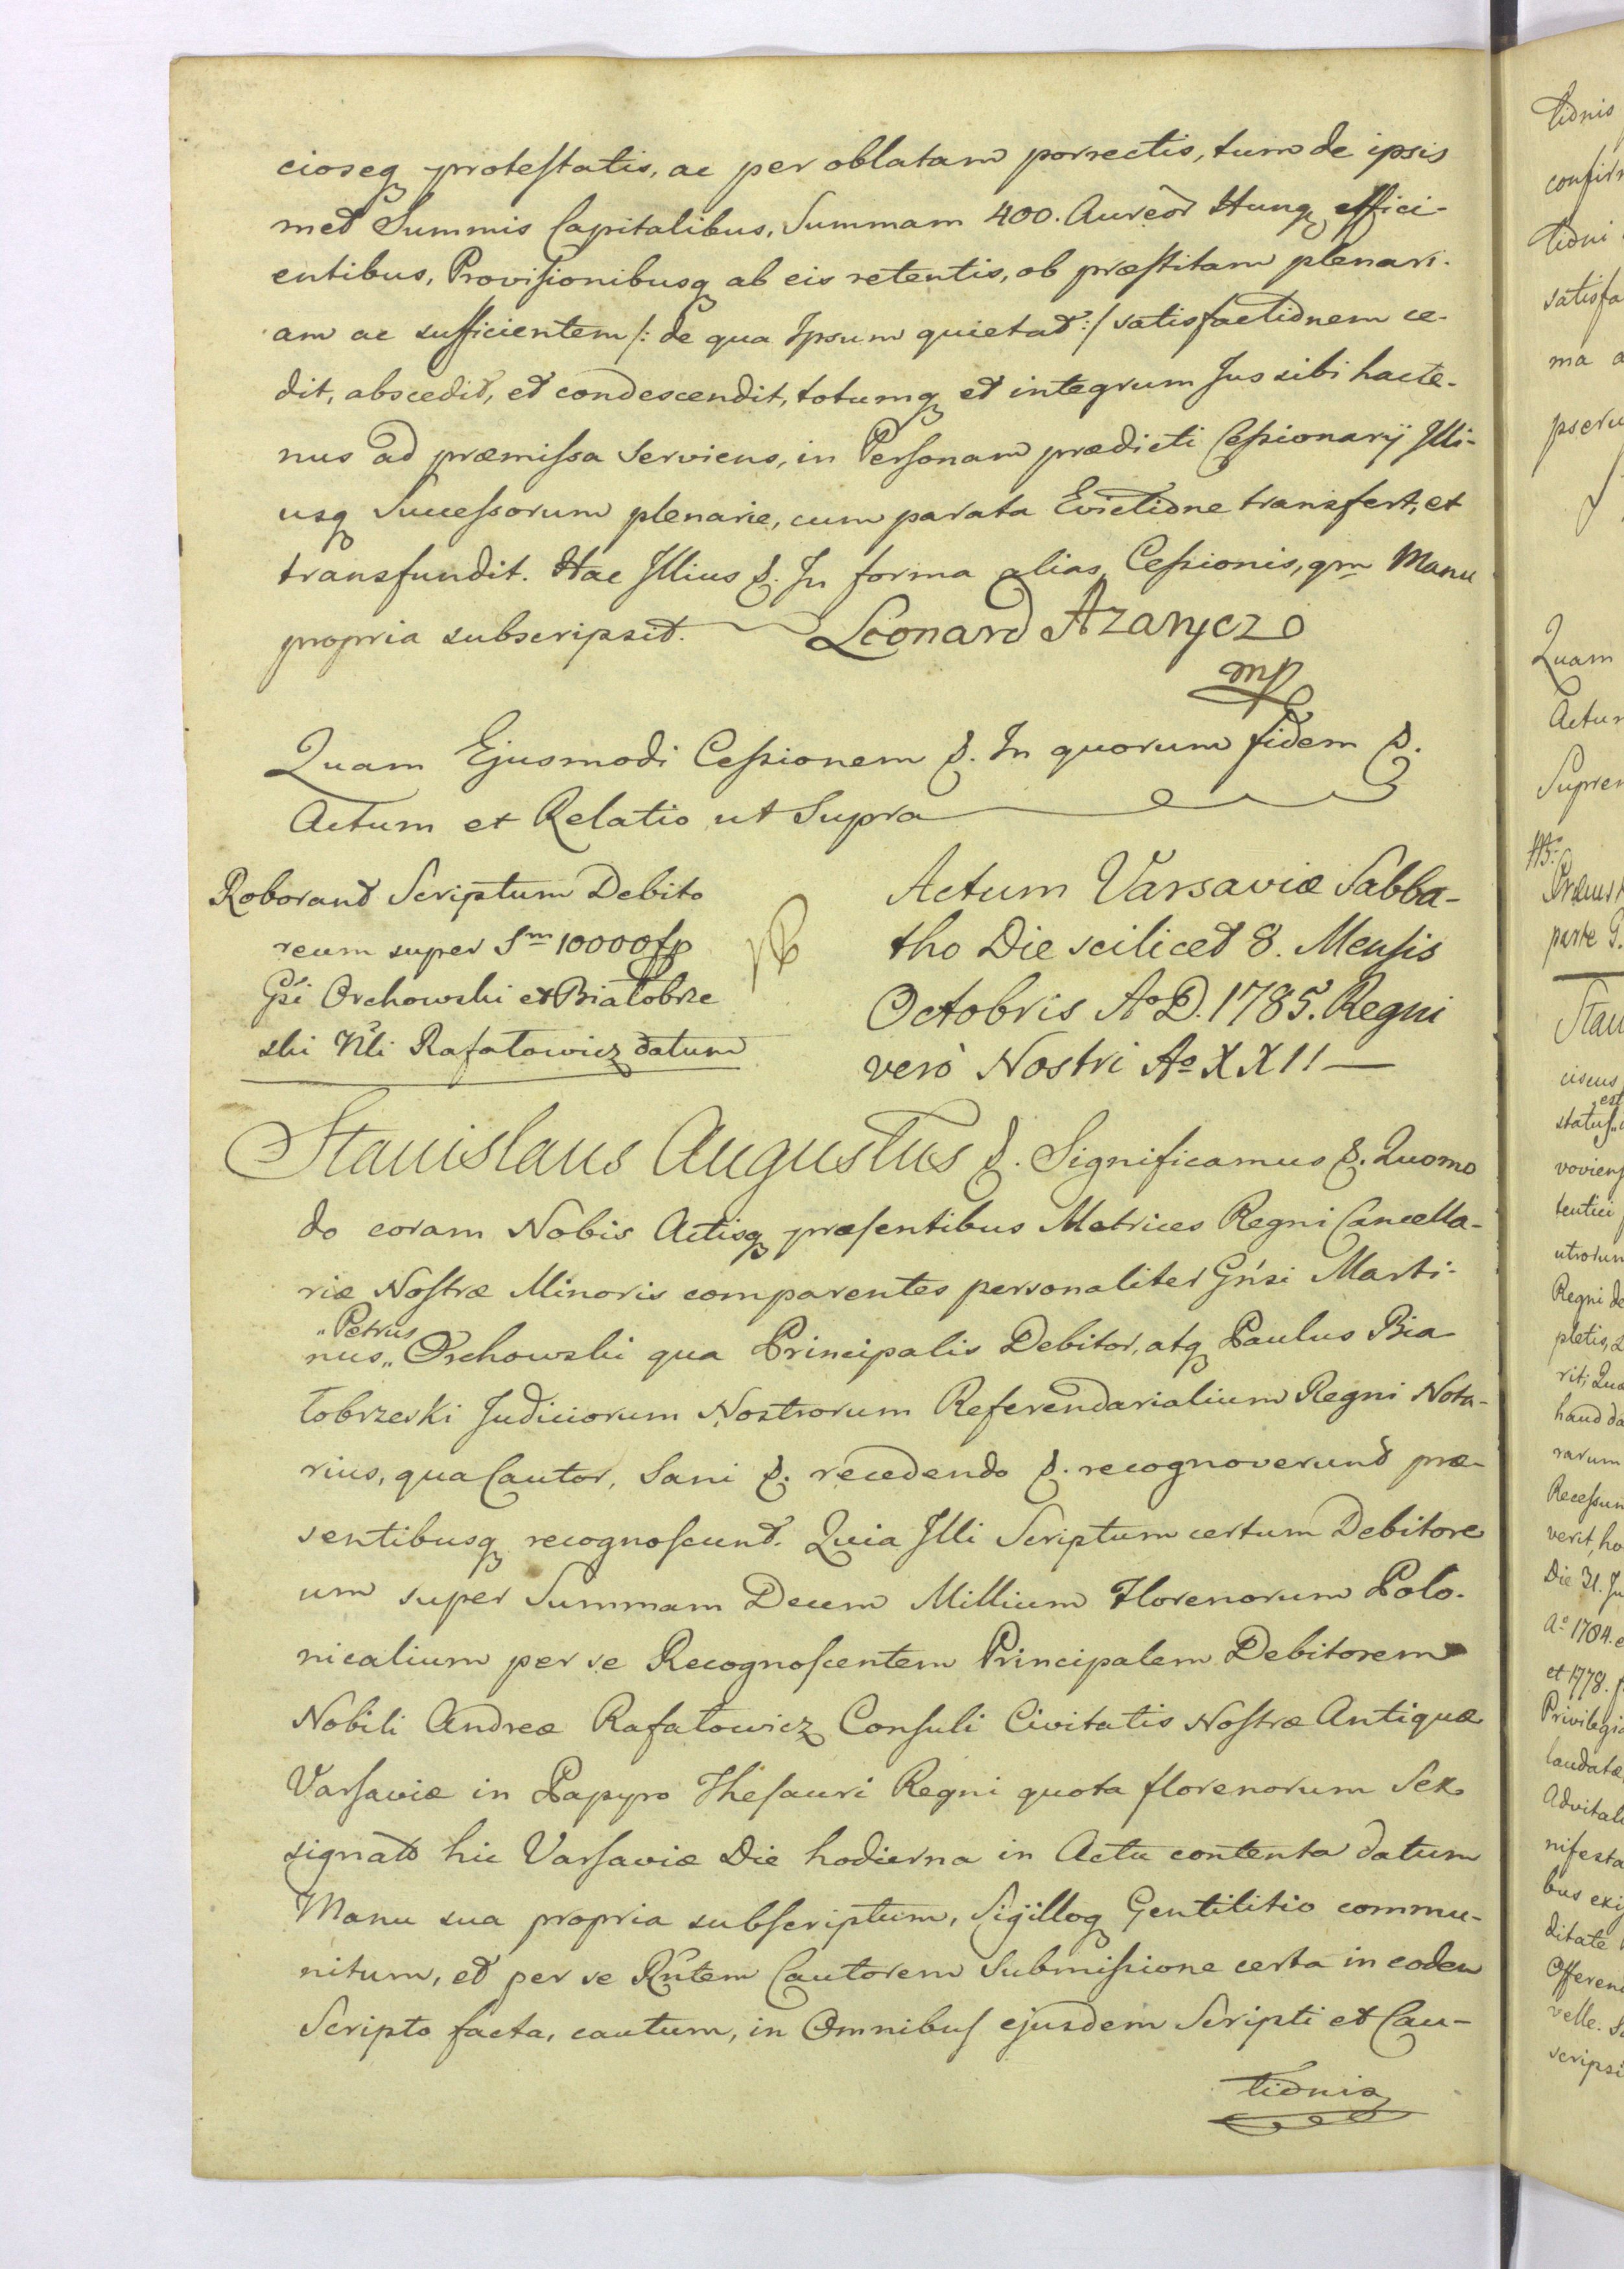 cioseq protestatis, ac per oblatam porrectis, tum de ipsis
met Summis Capitalibus, Summam 400. Aureor Hung effici-
entibus, Provisionibusq ab eis retentis, ob præstitam plenari-
am ac sufficientem /: de qua Ipsum quietat :/ satisfactionem ce-
dit, abscedit, et condescendit, totumq et integrum Jus sibi hacte-
nus ad præmissa serviens, in Personam prædicti Cessionarÿ Illi-
usq Successorum plenarie, cum parata Evictione transfert, et
transfundit. Hac Illius &. In forma alias Cessionis, qm Manu
propria subscripsit. Leonard Azarycz
mp
Quam Ejusmodi Cessionem &. In quorum fidem &.
Actum et Relatio ut Supra
Roborant Scriptum Debito
reum super Sm 10000 fp
Gsi Orchowski et Białobrze
ski Nli Rafałowicz datum
Actum Varsaviæ Sabba-
tho Die scilicet 8. Mensis
Octobris Ao D. 1785. Regni
verò Nostri Ao XXII
Stanislaus Augustus &. Significamus &. Quomo
do coram Nobis Actisq præsentibus Metrices Regni Cancella-
riæ Nostræ Minoris comparentes personaliter Gnsi Marti-
"Petrus
nus,, Orchowski qua Principalis Debitor, atq Paulus Bia
łobrzeski Judiciorum Nostrorum Referendarialium Regni Nota-
rius, qua Cautor, Sani &. recedendo &. recognoverunt præ-
sentibusq recognoscunt. Quia Illi Scriptum certum Debitore
um super Summam Decem Millium Florenorum Polo-
nicalium per se Recognoscentem Principalem Debitorem
Nobili Andreæ Rafałowicz Consuli Civitatis Nostræ Antiquæ
Varsaviæ in Papyro Thesauri Regni quota florenorum Sex
signato hic Varsaviæ Die hodierna in Actu contenta datum
Manu sua propria subscriptum, Sigilloq Gentilitio commu-
nitum, et per se Rntem Cautorem Submissione certa in eodem
Scripto facta, cautum, in Omnibus ejusdem Scripti et Cau-
tionis
tionis
tioni
satisfa
ma
Quam
Actum
Regni de
rarum
Die 31. Ju
Ao 1784. e
et 1778.
laudatæ
ditate
velle.